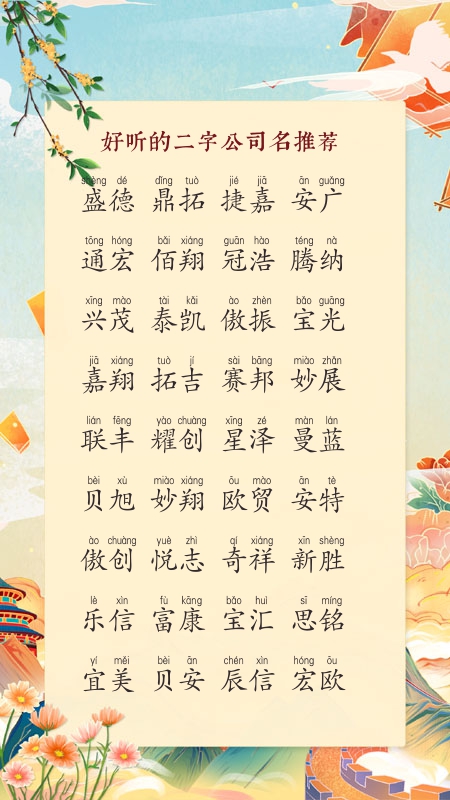 好听的二字公司名推荐
shèng dé dǐng tuò jié jiā ān guǎng
盛德 鼎拓 捷嘉 安广
tōng hóng bǎi xiáng guān hào téng nà
通宏 佰翔 冠浩 腾纳
xīng mào tài kǎi ào zhèn bǎo guāng
兴茂 泰凯 傲振 宝光
jiā xiáng tuò jí sài bāng miào zhǎn
嘉翔 拓吉 赛邦 妙展
lián fēng yào chuàng xīng zé màn lán
联丰 耀创 星泽 曼蓝
bèi xù miào xiáng ōu mào ān tè
贝旭 妙翔 欧贸 安特
ào chuàng yuè zhì qí xiáng xīn shèng
傲创 悦志 奇祥 新胜
lè xìn fù kāng bǎo huì sī míng
乐信 富康 宝汇 思铭
yí měi bèi ān chén xìn hóng ōu
宜美 贝安 辰信 宏欧